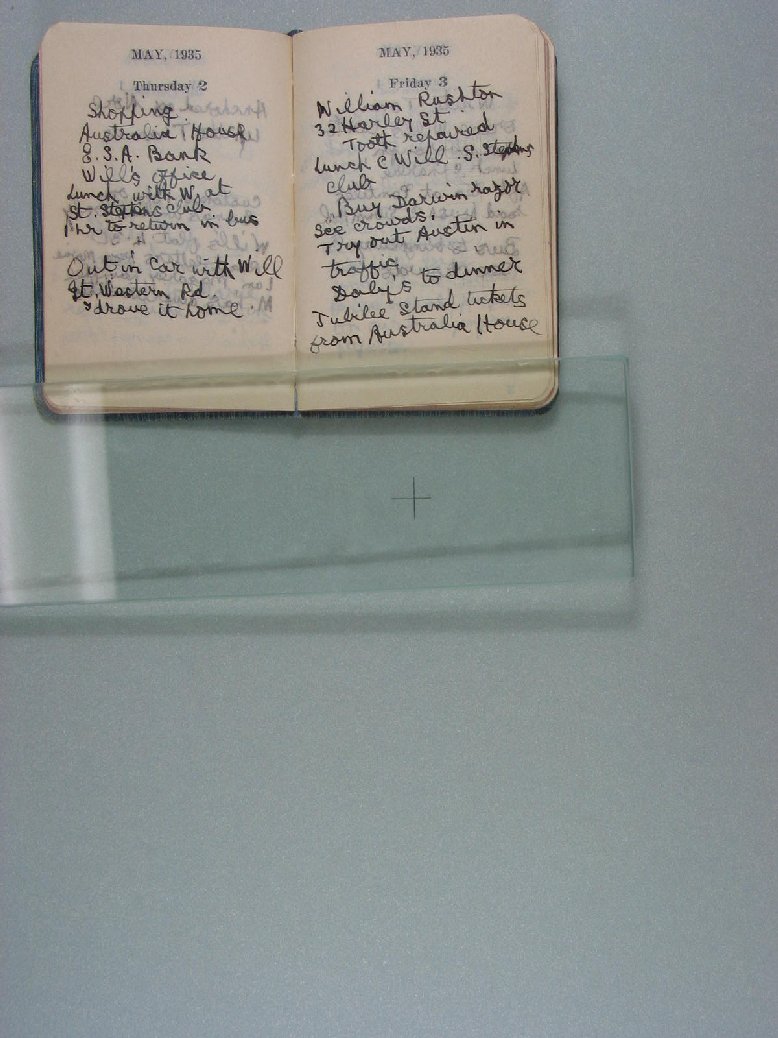 MAY, 1935
Thursday 2
Shopping.
Australia House
E.S.A. Bank
Will's office
Lunch with W. at
St. Stephens Club
1 hr to return in bus
Out in Car with Will
Gt. Western Rd
& drove it home.
MAY, 1935
Friday 3
William Rushton
32 Harley St
Tooth repaired
Lunch C Will. S. Stephens
club
Buy Darwin razor
See crowds.
Try out Austin in
traffic
Daly's to dinner
Jubilee Stand tickets
from Australia House